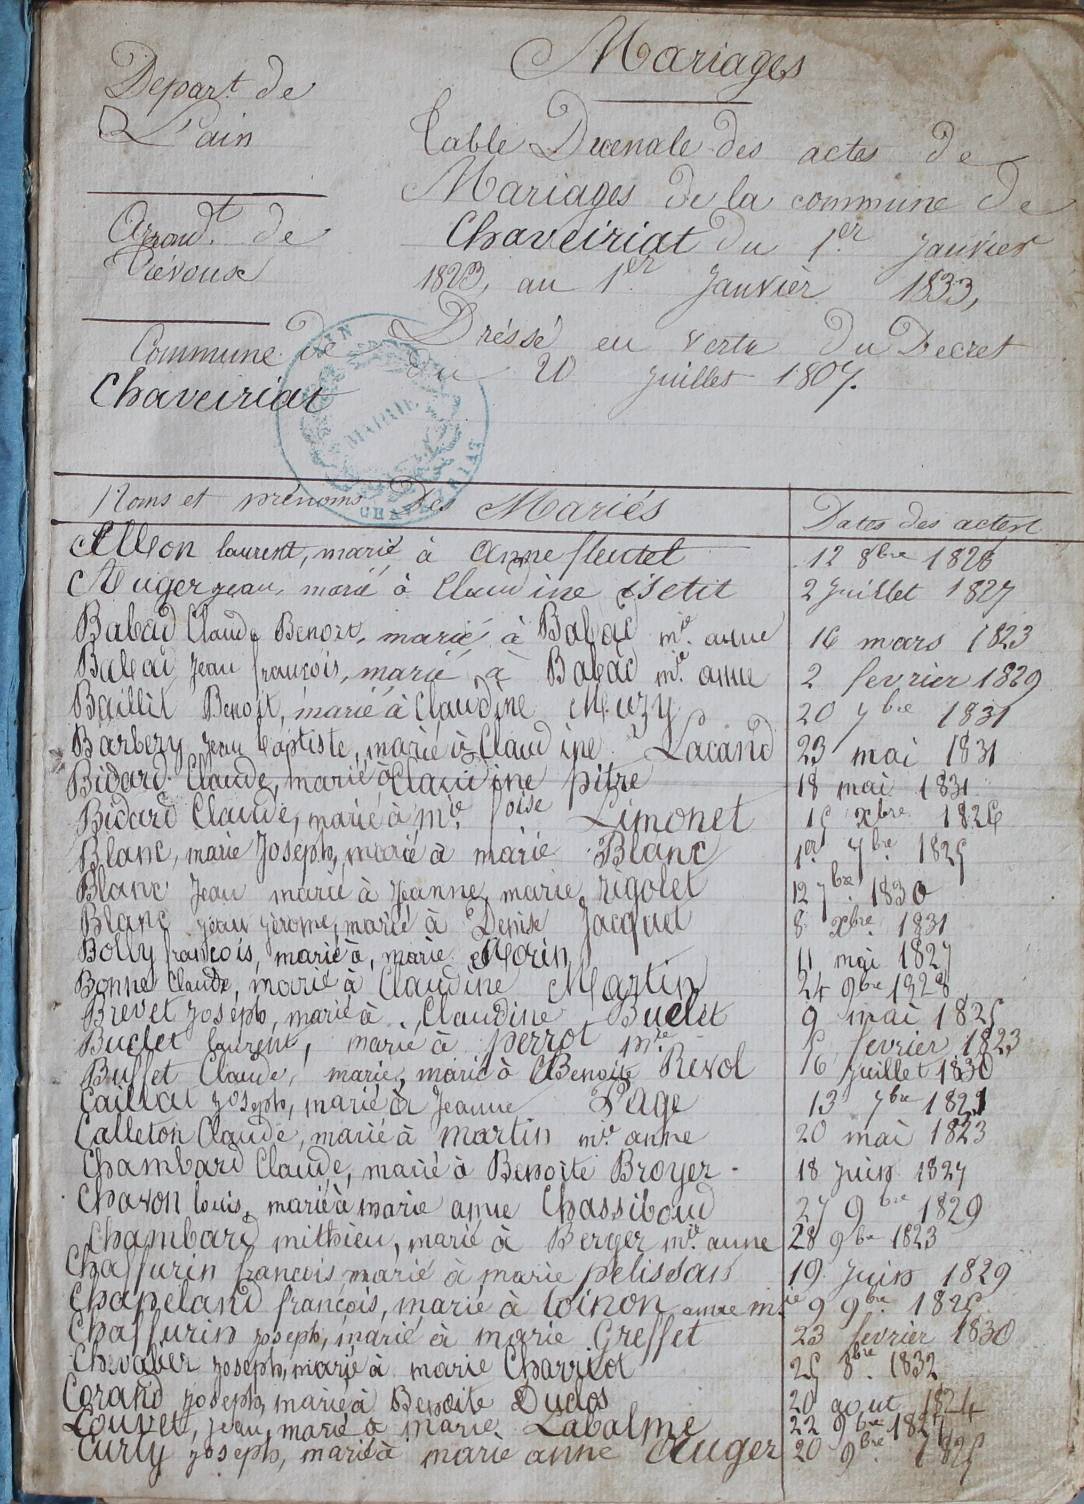 Mariages
Depart. de
L'ain
Arrond.t de
Trévoux
Commune de
Chaveiriat
Table Decenale des actes de
Mariages de la commune de
Chaveiriat du 1er Janvier
1823, au 1er Janvier 1833,
Dréssé en vertu du Decret
du 20 Juillet 1807.
AIN
MAIRIE
CHAVEYRIAT
Noms et prénoms des Mariés
Dates des actes
Alleon laurent, marié à anne fleutet 12 8bre 1826
Auger jean, marié à Claudine Petit 2 Juillet 1827
Babad Claude Benoit, marié à Babad mie anne 16 mars 1823
Babad Jean françois, marié à Babad mie anne 2 fevrier 1829
Baillit Benoit, marié à Claudine Muzy 20 7bre 1831
Barbery Jean baptiste, marié à Claudine Lacand 23 mai 1831
Bidard Claude, marié à Claudine pitre 18 mai 1831
Bidard Claude, marié à mie foise Limonet xbre 1826
Blanc, marie Joseph, marié à marie Blanc 1er 7bre 1825
Blanc Jean marié à Jeanne marie rigolet 12 7bre 1830
Blanc jean jérome, marié à Denise Jacquet 8 xbre 1831
Bolly françois, marié à, marie Morin 11 mai 1827
Bonne Claude, marié à Claudine Martin 24 9bre 1828
Brevet Joseph, marié à Claudine Buclet 9 mai 1825
Buclet laurent, marié à perrot mie fevrier 1823
Buffet Claude, marie, marié à Benoite Revol 16 Juillet 1830
Caillat joseph, marié à Jeanne Page 13 7bre 1821
Calleton Claude, marié à martin mie anne 20 mai 1823
Chambard Claude, marié à Benoite Broyer 18 juin 1827
Chavon louis, marié à marie anne Chassiboud 27 9bre 1829
Chambard mithieu, marié à Berger mie anne 28 9bre 1823
Chaffurin françois marié à marie pelissan 19 Juin 1829
Chapeland françois, marié à loinon anne mie 9 9bre 1825
Chaffurin joseph, marié à marie Greffet 23 fevrier 1830
Chevalier joseph, marié à marie Charriot 25 8bre 1832
Corand joseph marié à Benoite Duclos 20 aout 1824
Louvet, jean, marié à marie Labalme 22 9bre 1827
Curty joseph, marié à marie anne Auger 20 9bre 1825